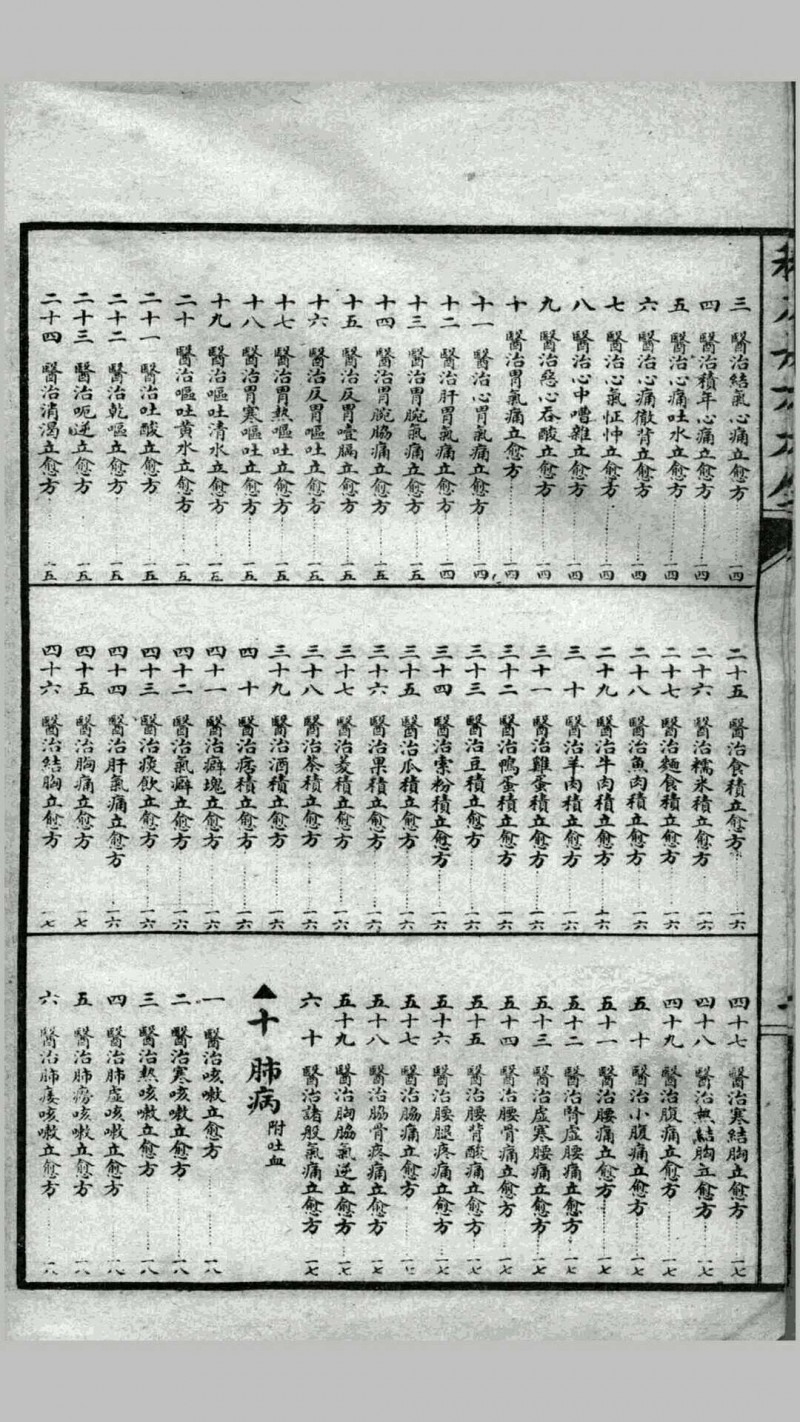 三 醫治結氣心痛立愈方 一四
四 醫治積年心痛立愈方 一四
五 醫治心痛吐水立愈方 一四
六 醫治心痛徹背立愈方 一四
七 醫治心氣怔忡立愈方 一四
八 醫治心中嘈雜立愈方 一四
九 醫治惡心吞酸立愈方 一四
十 醫治胃氣痛立愈方 一四
十一 醫治心胃氣痛立愈方 一四
十二 醫治肝胃氣痛立愈方 一四
十三 醫治胃脘氣痛立愈方 一五
十四 醫治胃脘脇痛立愈方 一五
十五 醫治反胃噎膈立愈方 一五
十六 醫治反胃嘔吐立愈方 一五
十七 醫治胃熱嘔吐立愈方 一五
十八 醫治胃寒嘔吐立愈方 一五
十九 醫治嘔吐清水立愈方 一五
二十 醫治嘔吐黃水立愈方 一五
二十一 醫治吐酸立愈方 一五
二十二 醫治乾嘔立愈方 一五
二十三 醫治呃逆立愈方 一五
二十四 醫治消渴立愈方 一五
二十五 醫治食積立愈方 一六
二十六 醫治糯米積立愈方 一六
二十七 醫治麵食積立愈方 一六
二十八 醫治魚肉積立愈方 一六
二十九 醫治牛肉積立愈方 一六
三十 醫治羊肉積立愈方 一六
三十一 醫治雞蛋積立愈方 一六
三十二 醫治鴨蛋積立愈方 一六
三十三 醫治豆積立愈方 一六
三十四 醫治索粉積立愈方 一六
三十五 醫治瓜積立愈方 一六
三十六 醫治果積立愈方 一六
三十七 醫治菱積立愈方 一六
三十八 醫治茶積立愈方 一六
三十九 醫治酒積立愈方 一六
四十 醫治痞積立愈方 一六
四十一 醫治癖塊立愈方 一六
四十二 醫治氣癖立愈方 一六
四十三 醫治痰飲立愈方 一六
四十四 醫治肝氣痛立愈方 一六
四十五 醫治胸痛立愈方 一七
四十六 醫治結胸立愈方 一七
四十七 醫治寒結胸立愈方 一七
四十八 醫治熱結胸立愈方 一七
四十九 醫治腹痛立愈方 一七
五十 醫治小腹痛立愈方 一七
五十一 醫治腰痛立愈方 一七
五十二 醫治腎虛腰痛立愈方 一七
五十三 醫治虛寒腰痛立愈方 一七
五十四 醫治腰骨痛立愈方 一七
五十五 醫治腰背酸痛立愈方 一七
五十六 醫治腰腿疼痛立愈方 一七
五十七 醫治脇痛立愈方 一七
五十八 醫治脇骨疼痛立愈方 一七
五十九 醫治胸脇氣逆立愈方 一七
六十 醫治諸般氣痛立愈方 一七
▲十 肺病 附吐血
一 醫治咳嗽立愈方 一八
二 醫治寒咳嗽立愈方 一八
三 醫治熱咳嗽立愈方 一八
四 醫治肺虛咳嗽立愈方 一八
五 醫治肺癆咳嗽立愈方 一八
六 醫治肺痿咳嗽立愈方 一八